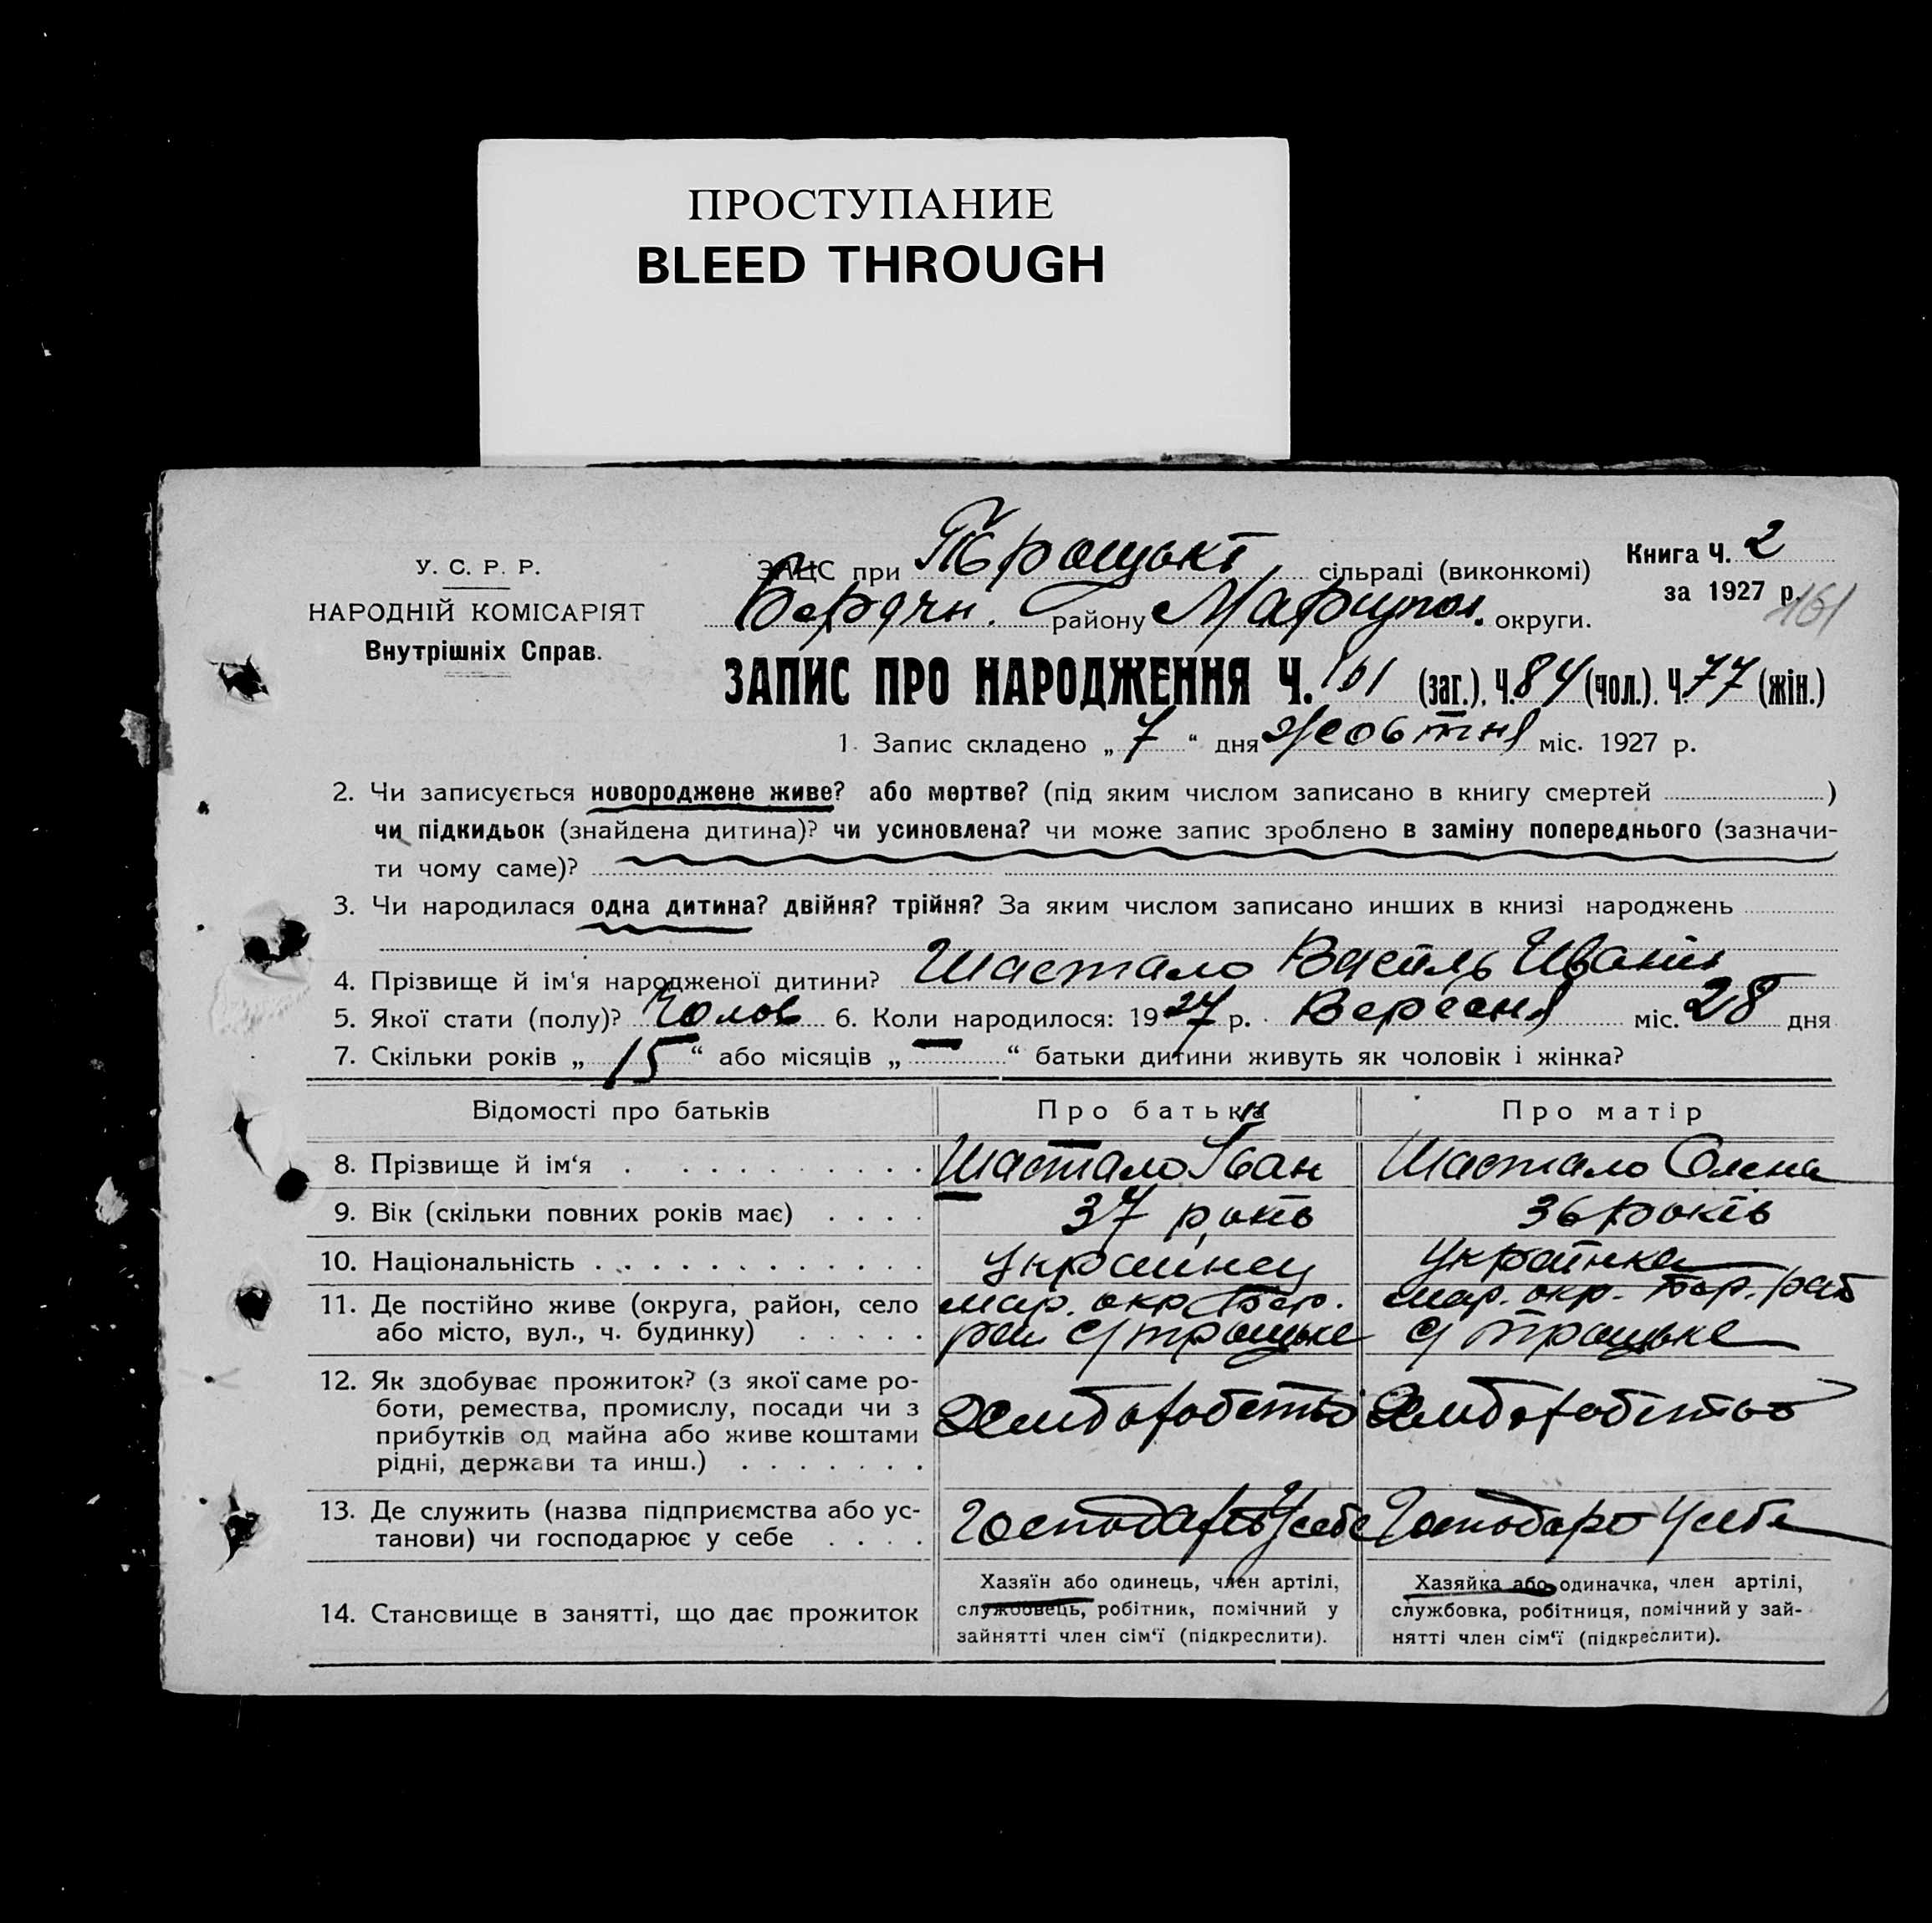 ПРОСТУПАНИЕ
BLEED THROUGH
У. С. Р. Р.
НАРОДНІЙ КОМІСАРІЯТ
Внутрішніх Справ.
ЗАЦС при Троцькі сільраді (виконкомі)
Бердян. району Маріупол. округи.
Книга Ч. 2
за 1927 р.
161
ЗАПИС ПРО НАРОДЖЕННЯ Ч. 161 (заг.), Ч. 84 (чол.). Ч. 77 (жін.)
1. Запис складено „ 7 “ дня Жовтня міс. 1927 р.
2. Чи записується новороджене живе? або мертве? (під яким числом записано в книгу смертей )
чи підкидьок (знайдена дитина)? чи усиновлена? чи може запис зроблено в заміну попереднього (зазначи-
ти чому саме)?
3. Чи народилася одна дитина? двійня? трійня? За яким числом записано инших в книзі народжень
4. Прізвище й ім‘я народженої дитини? Шастало Василь Иванів
5. Якої стати (полу)? Чолов 6. Коли народилося: 1927 р. Вересня міс. 28 дня
7. Скільки років „ 15 “ або місяців „ — “ батьки дитини живуть як чоловік і жінка?
Відомості про батьків Про батька Про матір
8. Прізвище й ім‘я Шастало Іван Шастало Олена
9. Вік (скільки повних років має) 37 років 36 років
10. Національність Українец Українка
11. Де постійно живе (округа, район, село мар. окр. Бер. мар. окр. Бер. рай
або місто, вул., ч. будинку) рай с/ троцьке с/ троцьке
12. Як здобуває прожиток? (з якої саме ро-
боти, ремества, промислу, посади чи з
прибутків од майна або живе коштами
рідні, держави та инш.) Хлиборобство Хлиборобство
13. Де служить (назва підприємства або ус-
танови) чи господарює у себе Господарь У себе Господарь У себе
14. Становище в занятті, що дає прожиток
Хазяїн або одинець, член артілі,
службовець, робітник, помічний у
зайнятті член сім‘ї (підкреслити).
Хазяйка або одиначка, член артілі,
службовка, робітниця, помічний у зай-
нятті член сім‘ї (підкреслити).